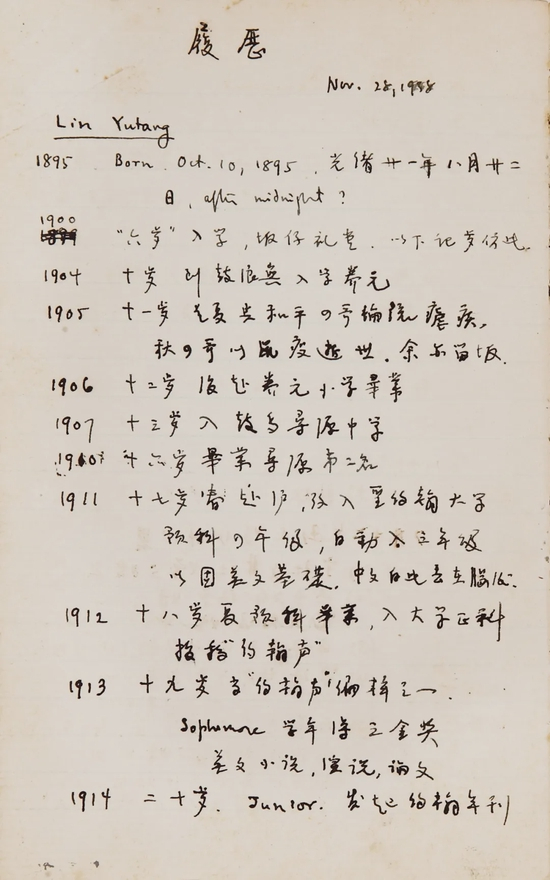 履歷
Nov. 28, 1958
Lin Yutang
1895 Born Oct. 10, 1895. 光绪廿一年八月廿二
日, after midnight?
1900
1899 "六岁" 入学, 坂仔礼堂. 以下记岁仿此.
1904 十岁 到鼓浪屿入学养元
1905 十一岁 夏 和平
秋 鼠疫逝世. 余 留坂.
1906 十二岁 复赴养元小学畢業
1907 十三岁 入鼓岛寻源中学
1910? 十六岁畢業寻源第二名
1911 十七岁春赴沪, 改入圣约翰大学
预科の年级, 自動入三年级
以固英文基礎. 中文自此丢在腦後.
1912 十八岁夏预科畢業, 入大学正科
投稿"约翰声"
1913 十九岁 为"约翰声"编辑之一.
Sophomore 学年得三金奖
英文小说, 演说, 论文
1914 二十岁. Junior. 发起约翰年刊